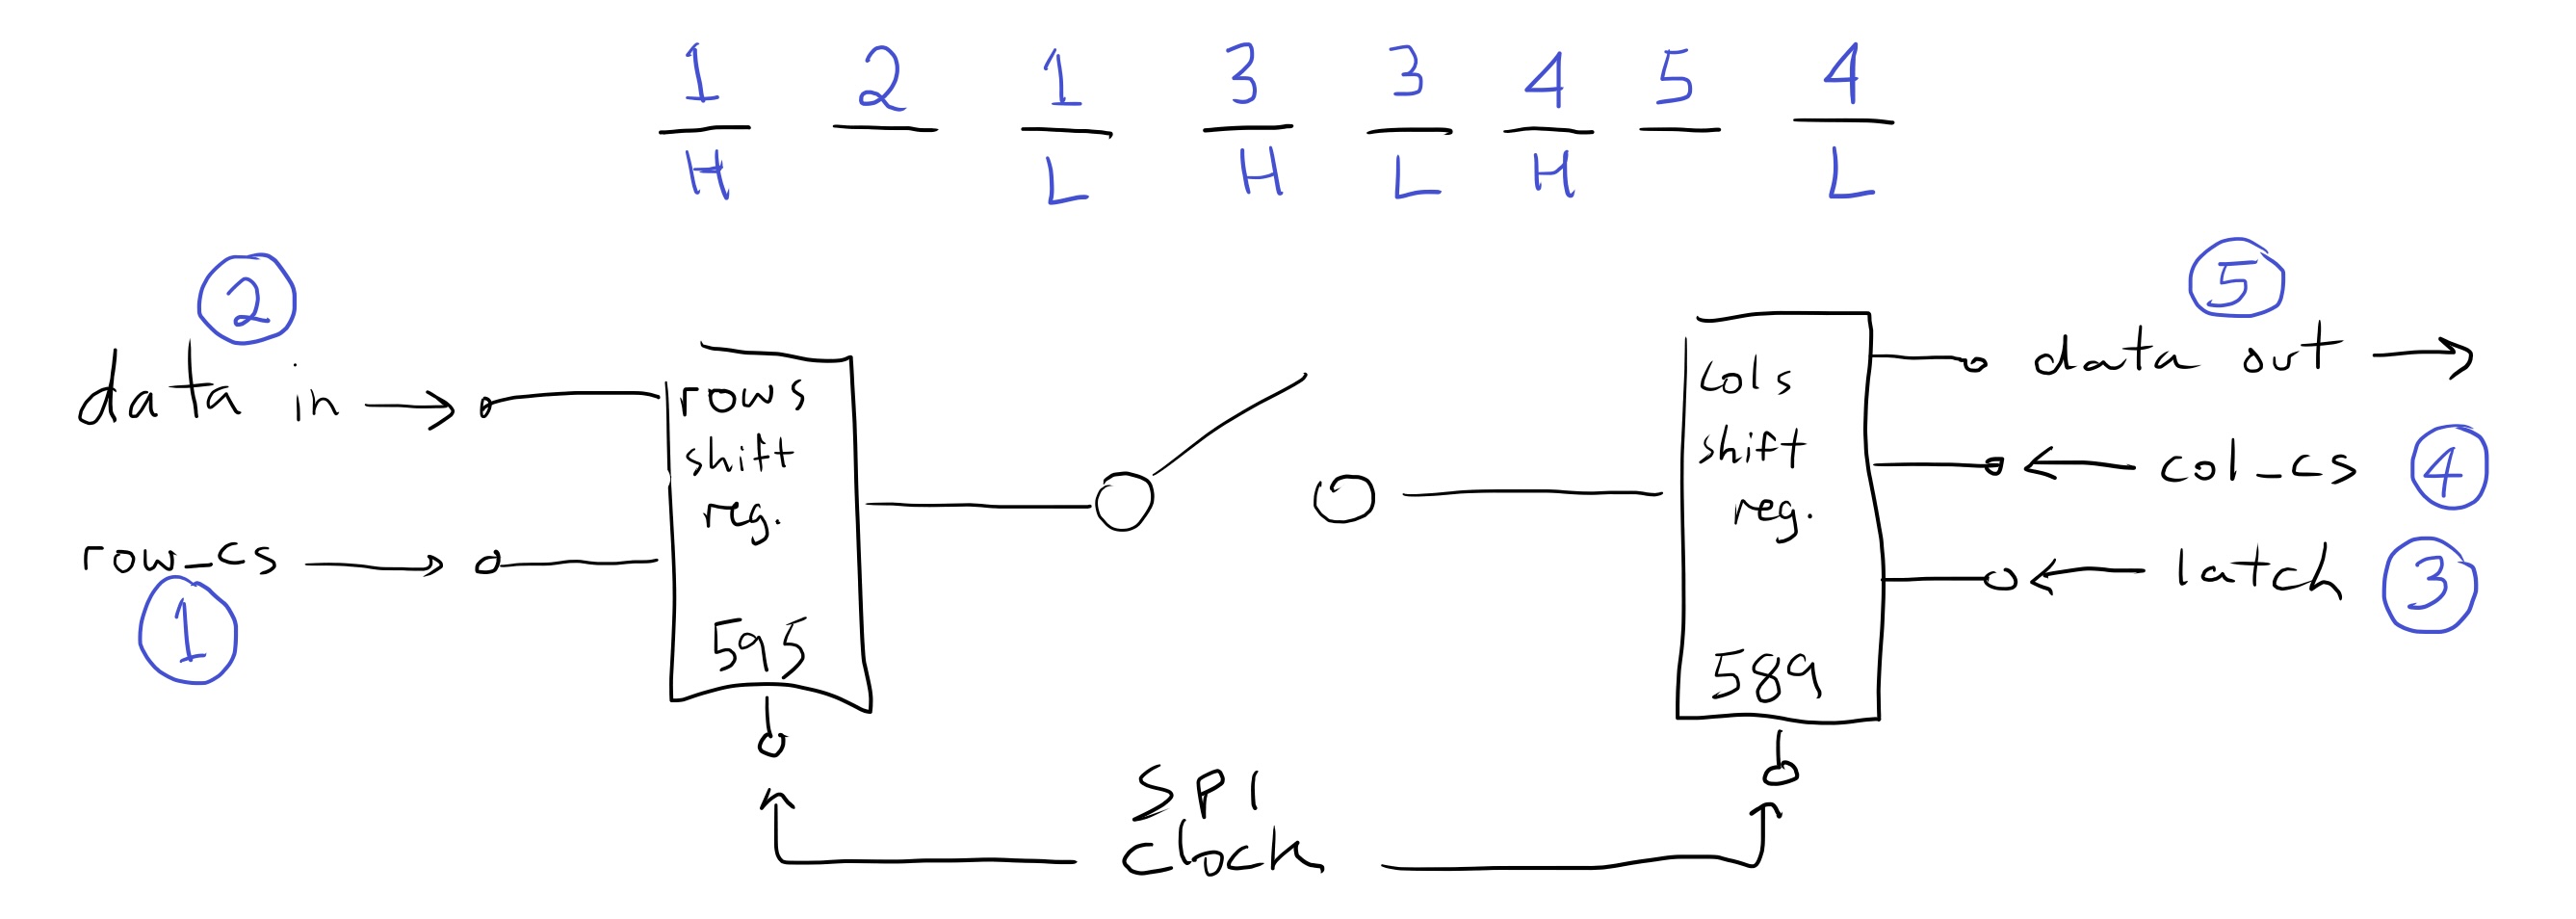 1 2 1 3 3 4 5 4
H L H L H L
2
data in
row_cs
1
rows
shift
reg.
595
cols
shift
reg.
589
5
data out
col_cs 4
latch 3
SPI
clock